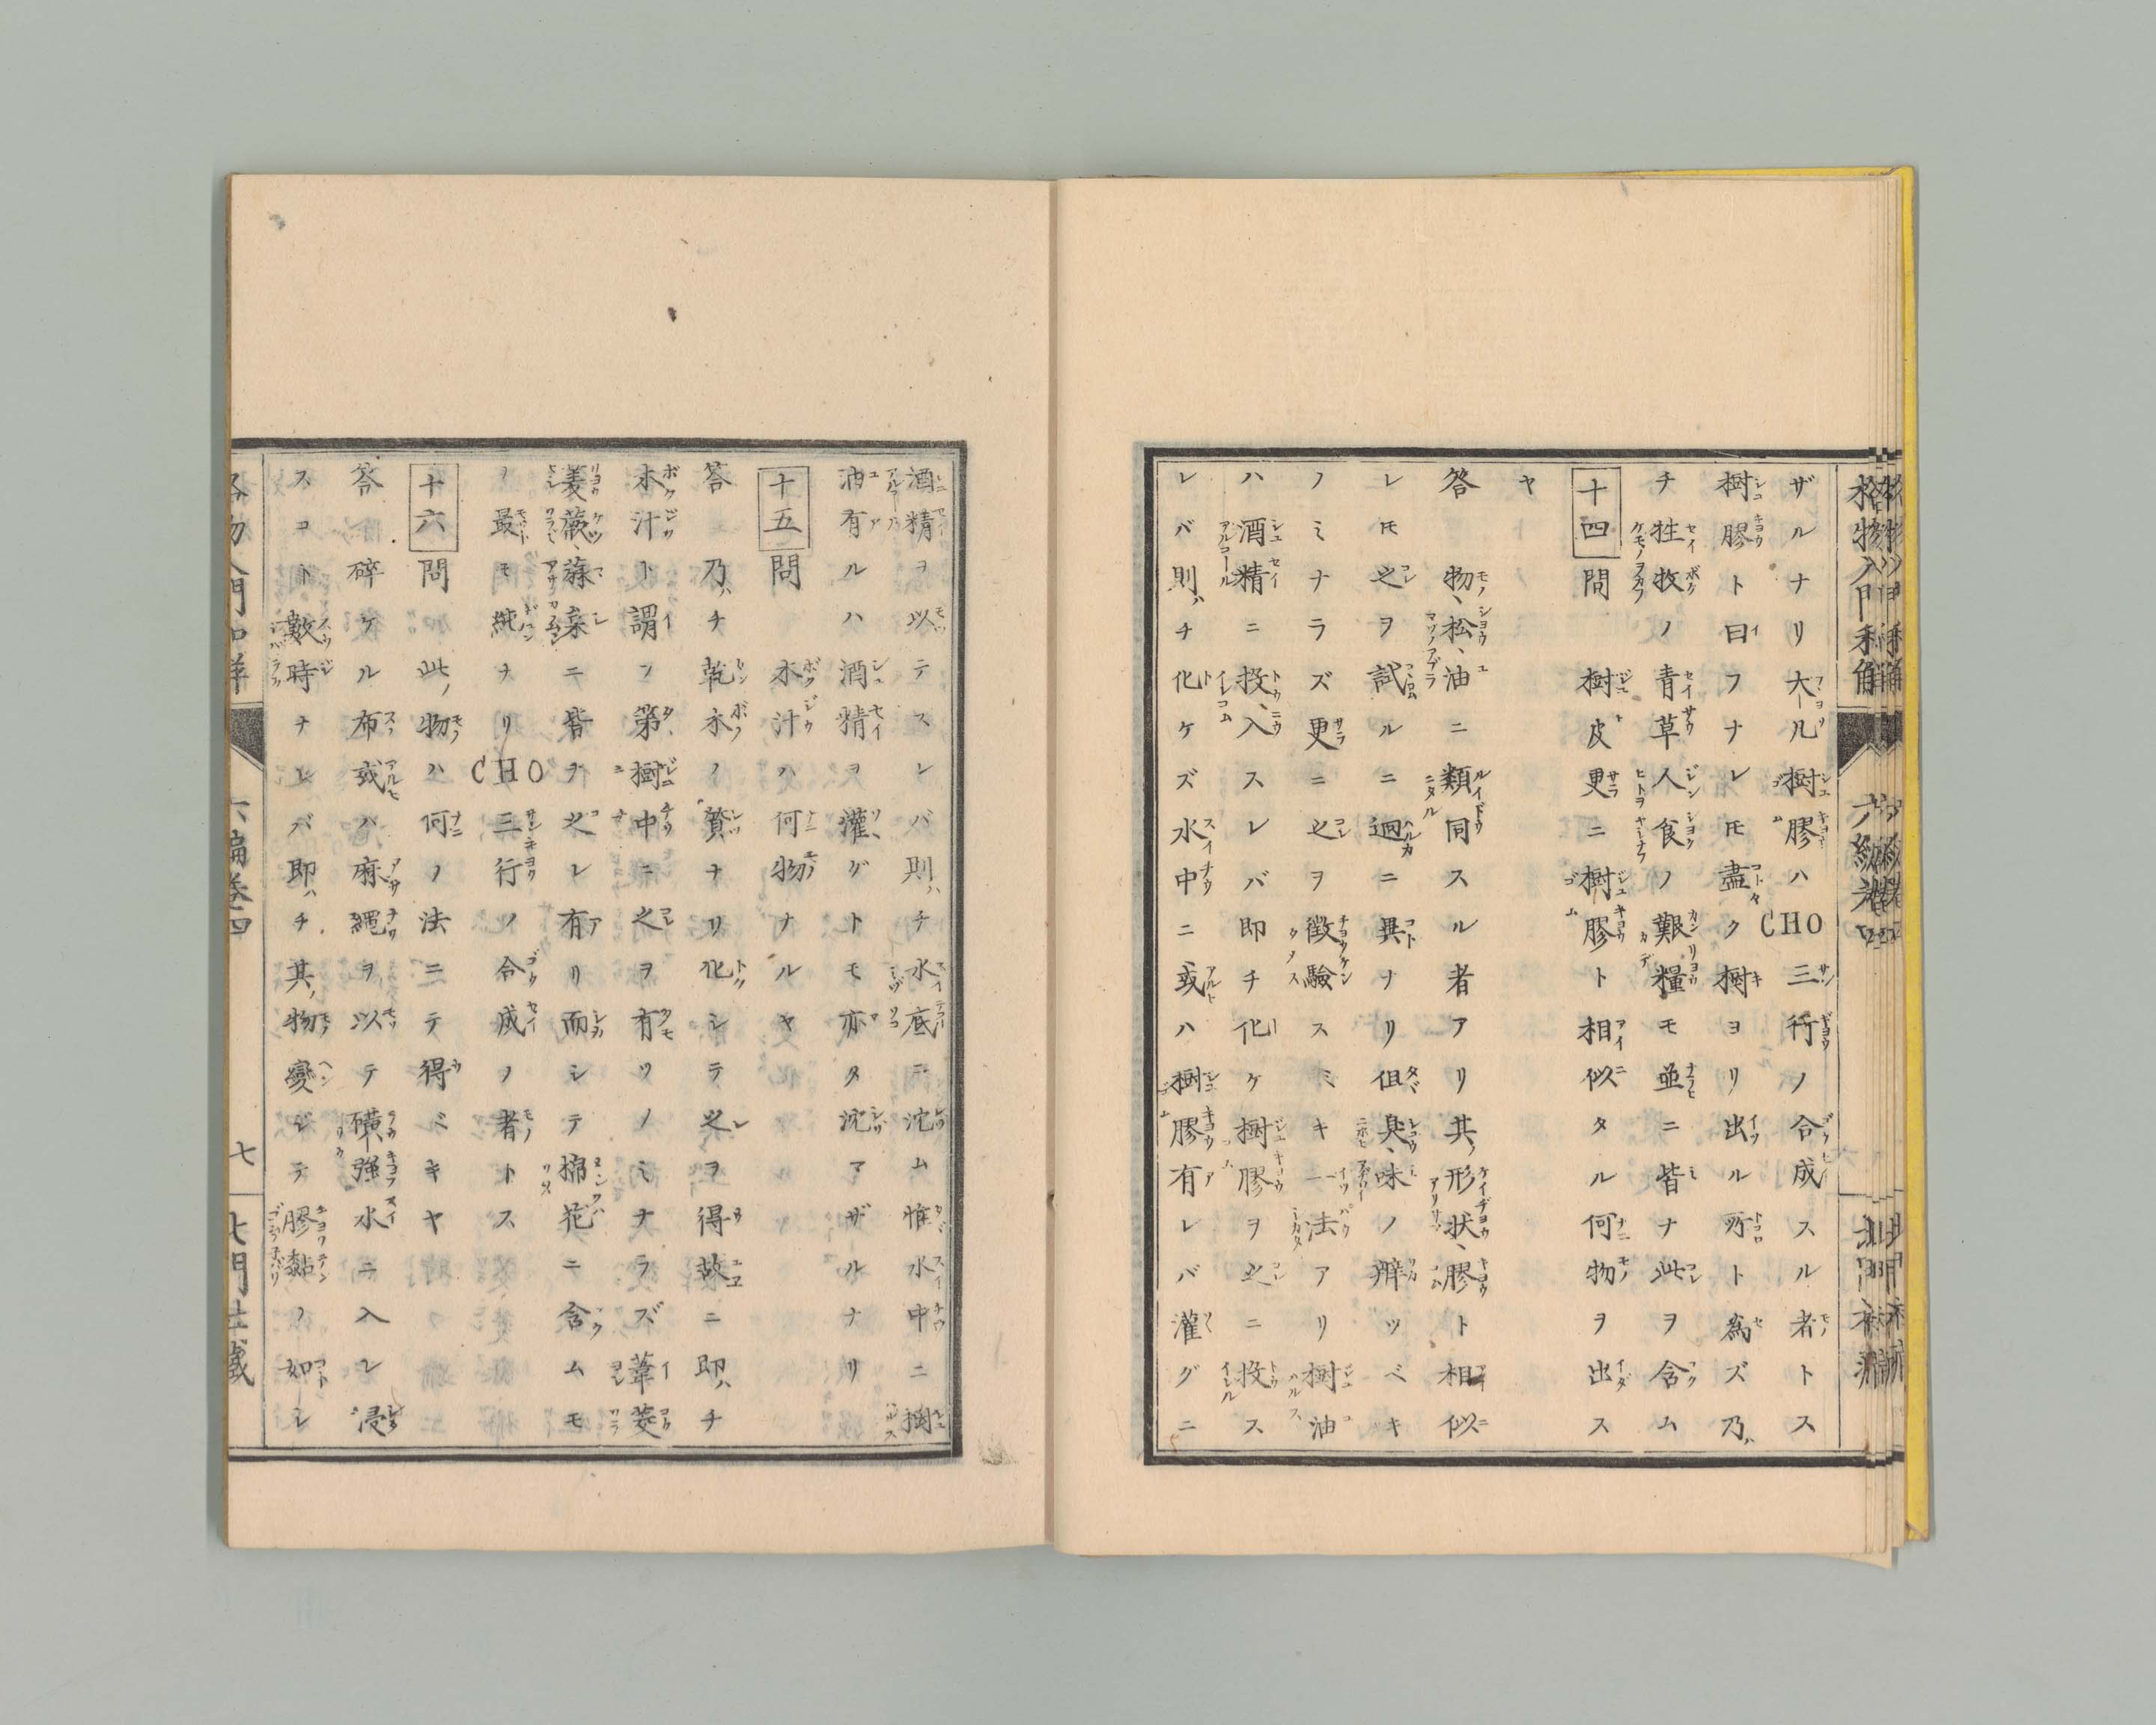 ザルナリ大凡樹膠ハCHO三行ノ合成スル者トス
樹膠ト曰フナレ𪜈盡ク樹ヨリ出ル所ト為ズ乃
チ牲牧ノ青草人食ノ艱糧モ並ニ皆ナ此ヲ含ム
十四 問 樹皮更ニ樹膠ト相似タル何物ヲ出ス
ヤ
答 物、松、油ニ類同スル者アリ其ノ形状、膠ト相似
レ𪜈之ヲ試ルニ迥ニ異ナリ但臭、味ノ辨ツベキ
ノミナラズ更ニ之ヲ徴驗スミキ一法アリ樹油
ハ酒精ニ投、入スレバ即チ化ケ樹膠ヲ之ニ投ス
レバ則ハチ化ケズ水中ニ或ハ樹膠有レバ灌グニ
酒精ヲ以テスレバ則ハチ水底ニ沈ム惟水中ニ樹
油有ルハ酒精ヲ灌グトモ亦タ沈マザルナリ
十五 問 木汁ハ何物ナルヤ
答 乃ハチ乾木ノ質ナリ化シテ之ヲ得故ニ即ハチ
木汁ト謂フ第樹中ニ之ヲ有ツノミナラズ葦、菱
蔆蕨、蔴枲ニ皆ナ之レ有リ而シテ棉花ニ含ムモ
ノ最モ純ナリCHO三行ノ合成ノ者トス
十六 問 此ノ物ハ何ノ法ニテ得ベキヤ
答 碎ケル布或ハ麻繩ヲ以テ磺、強水ニ入レ浸
スコト數時ナレバ即ハチ其ノ物變ジテ膠黏ノ如シ
六編卷四
七